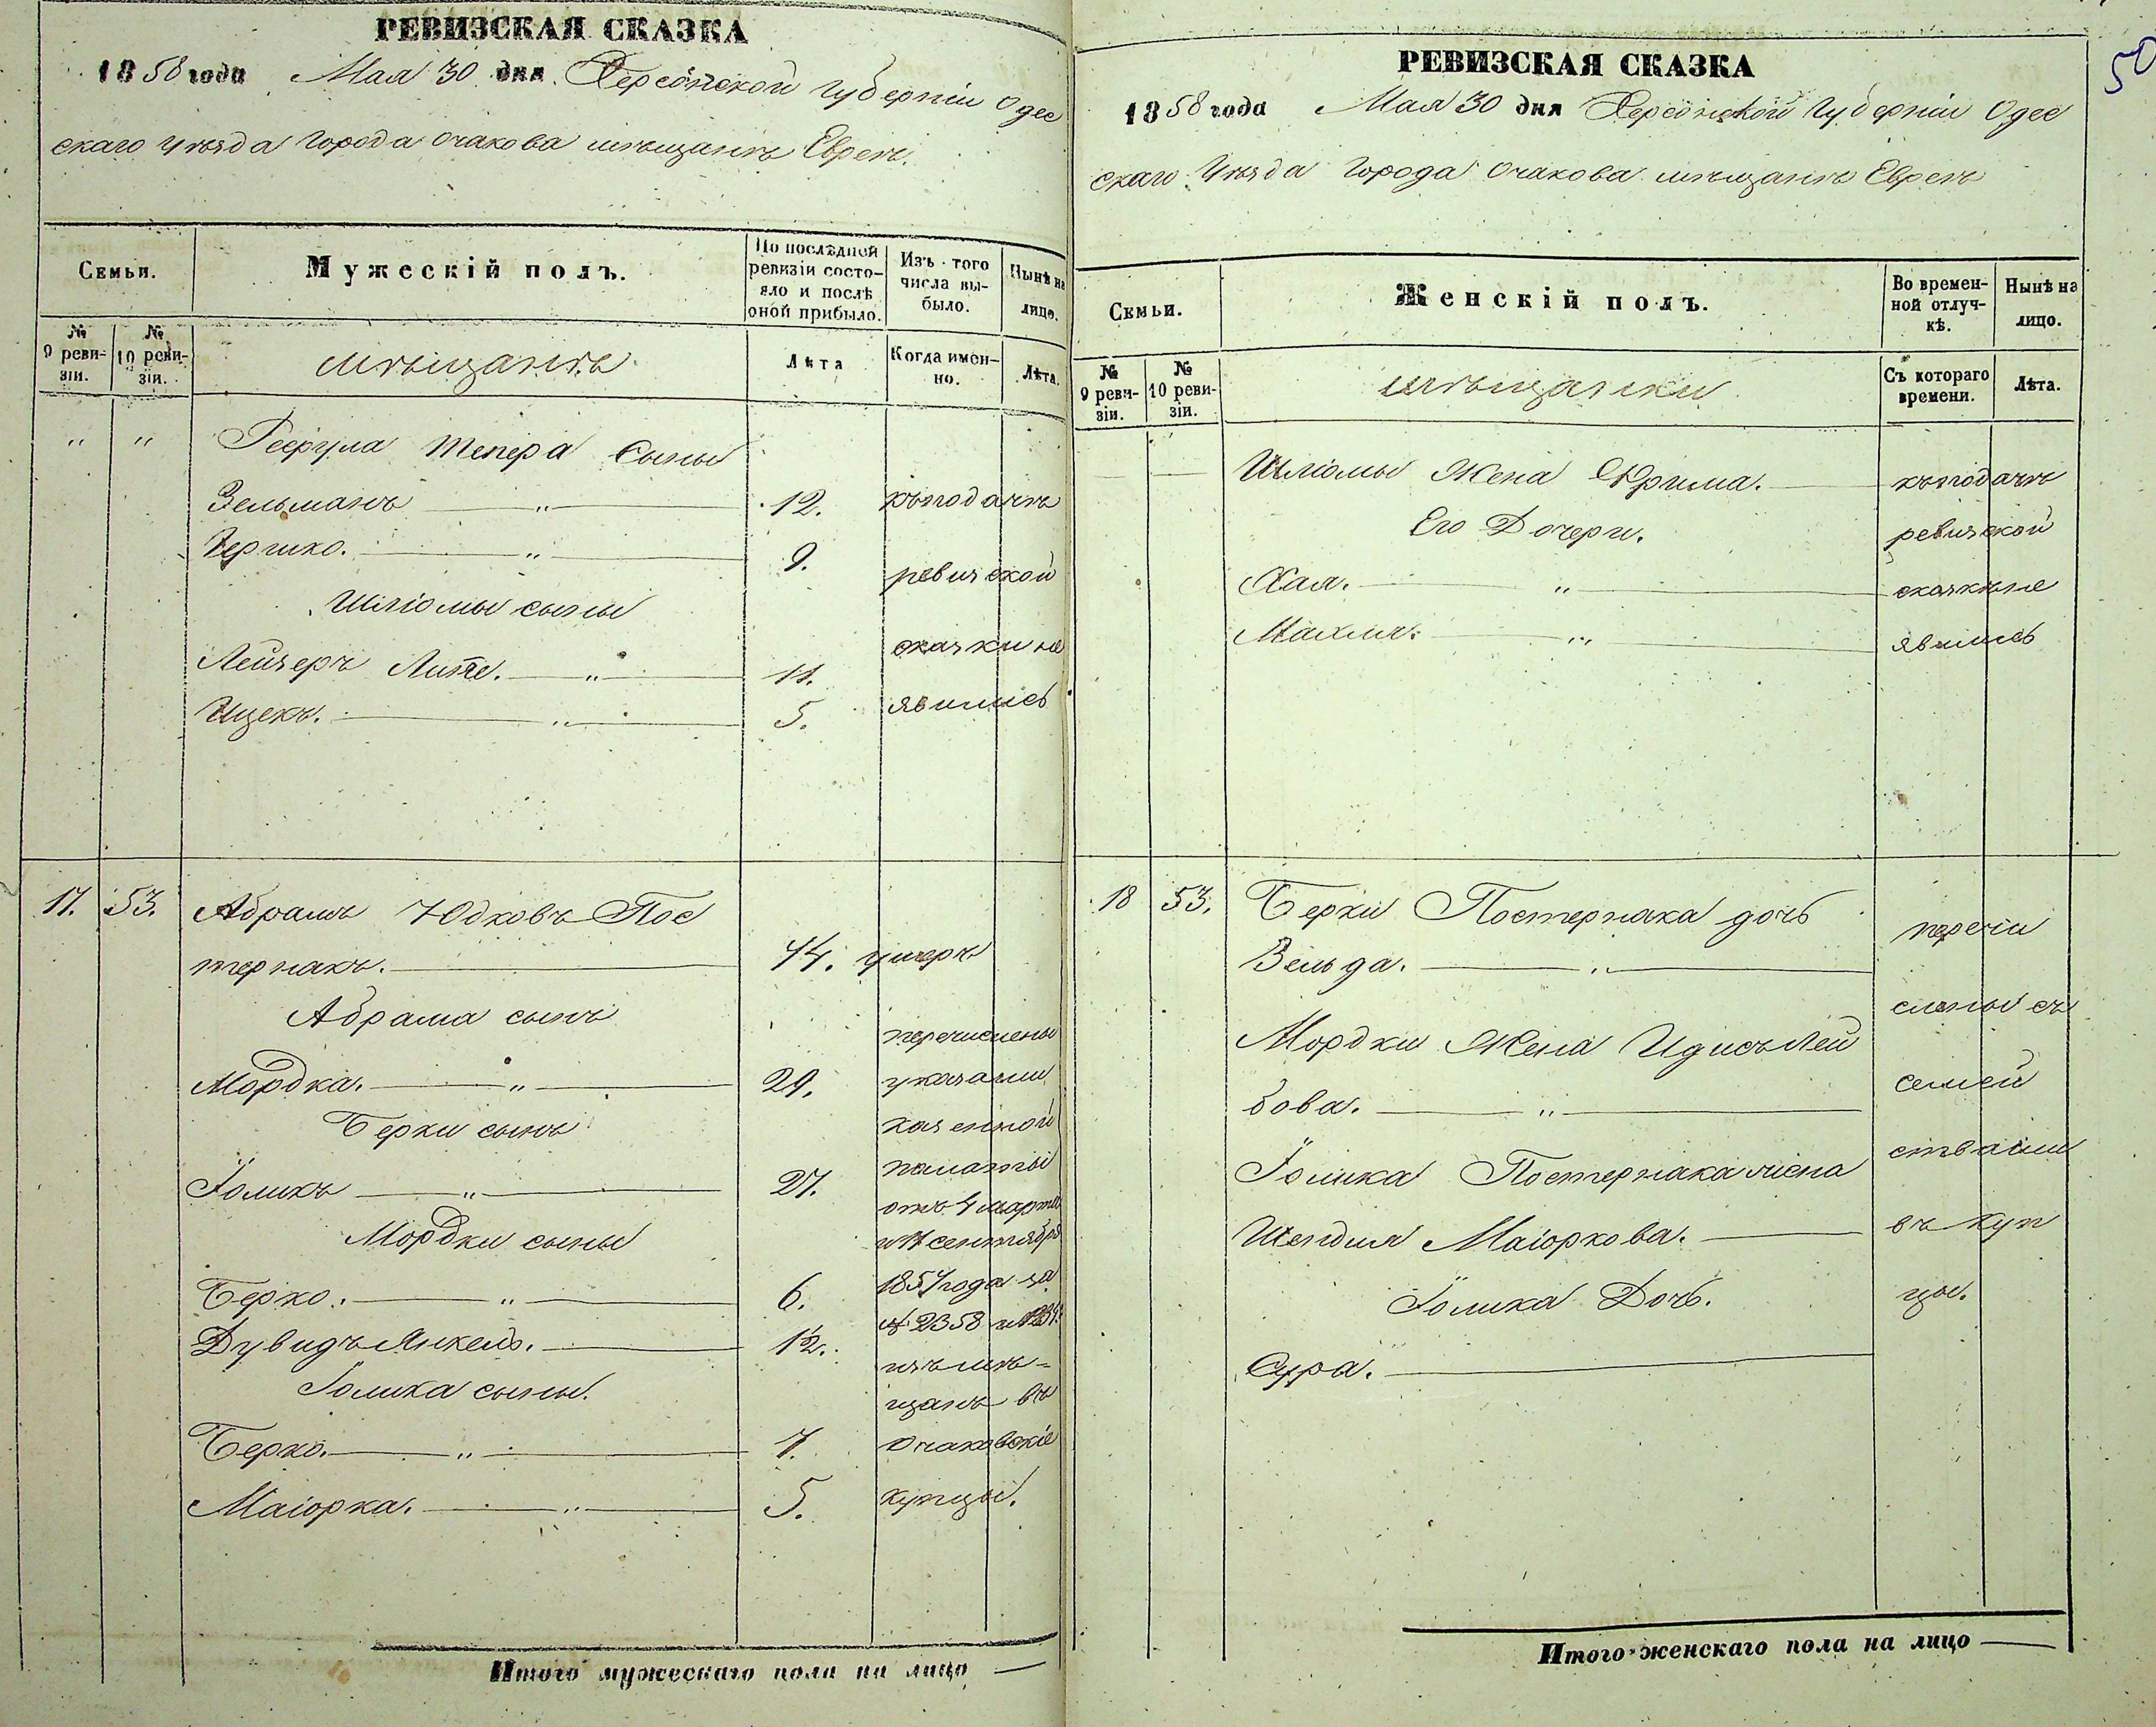 РЕВИЗСКАЯ СКАЗКА
1858 года Мая 30 дня Херсонской Губерніи Одес
скаго уѣзда Города Очакова мѣщанъ Евреевъ.
Семьи.
Мужескій полъ.
По послѣдней ревизіи состояло и послѣ оной прибыло.
Изъ того числа выбыло.
Нынѣ на лицо.
№ 9 ревизіи.
№ 10 ревизіи.
мѣщанъ
Лѣта
Когда именно.
Лѣта.
" " Тепера Сыны
Зельманъ " 12. къ подачѣ
Гершко. " 9. ревизской
Шліомы сыны
сказки не
Лейзеръ Липе. " 11.
Ицекъ. " 5. явились
17. 53. Абрамъ Юдковъ Пос
тернакъ. 44. умеръ
Абрама сынъ
перечислены
Мордка. " 29. указами
Берки сынъ казенной
палаты
Іоликъ " 27.
отъ 4 марта
Мордки сыны и 11 сентября
Берко. " 6. 1857 года за
№ 2358
Дувидъ Янкель. 12.
изъ мѣ-
Іолика сыны.
щанъ въ
Берко. " 7. Очаковскіе
Маіорка. " 5. купцы.
Итого мужескаго пола на лицо —
50
РЕВИЗСКАЯ СКАЗКА
1858 года Мая 30 дня Херсонской Губерніи Одес
скаго Уѣзда Города Очакова мѣщанъ Евреевъ
Семьи.
Женскій полъ.
Во временной отлучкѣ.
Нынѣ на лицо.
№ 9 ревизіи.
№ 10 ревизіи.
мѣщанки
Съ котораго времени.
Лѣта.
Шліомы Жена Фрима. къ подачѣ
Его Дочери. ревизской
Хая. " сказки не
Махля. " явились
18 53. Берки Постернака дочь
Зельда. " перечи
слены съ
Мордки Жена Идисъ Лей
бова. " семей
Іолика Постернака жена ствами
Шендля Маіоркова. въ куп
Іолика Дочь. цы.
Сура.
Итого женскаго пола на лицо —